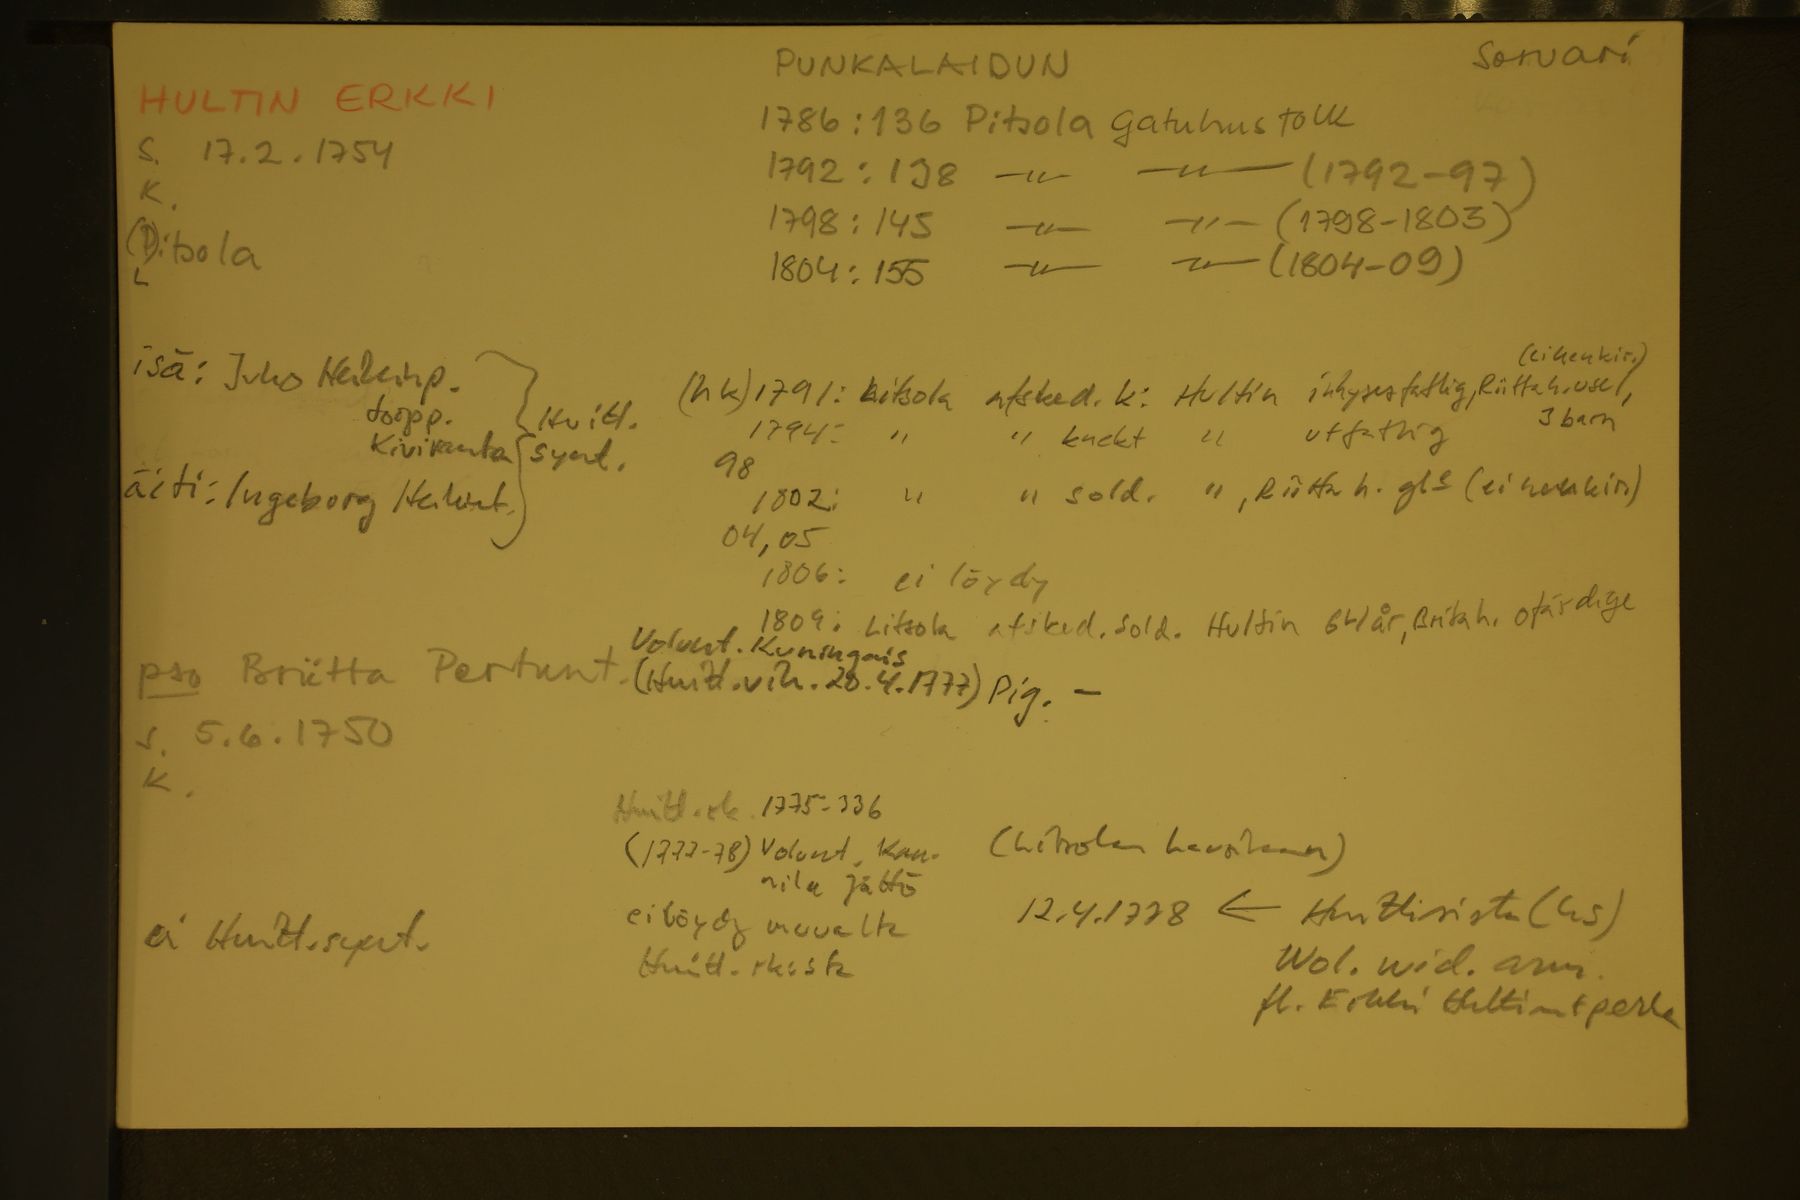 PUNKALAIDUN
Sorvari
HULTIN ERKKI
s. 17.2.1754
k.
(P)itsola
L
1786:136 Pitsola Gatuhusfolk
1792:138 —"— —"— (1792-97)
1798:145 —"— —"— (1798-1803)
1804:155 —"— —"— (1804-09)
isä: Juho Heikinp.
torpp.
Kiviranta
Huitt.
synt.
äiti: Ingeborg Heikint.
(eihenkir.)
(hk) 1791: Litsola afsked. k: Hultin inhysesfattig, Riitta h. usel,
3 barn
1794: " " knekt " utfattig
98
1802: " " sold. ", Riitta h. gls (ei henkir.)
04, 05
1806: ei löydy
1809: Litsola afsked. sold. Hultin 64 år, Brita h. ofärdige
pso Briitta Pertunt.
Volunt. Kuningais
(Huitt. vih. 20.4.1777) Pig. —
s. 5.6.1750
k.
Huitt. rk. 1775-336
(1777-78) Volunt. Kan-
nila jättö
ei löydy muualta
Huitt. rk:sta
(Litsolan
12.4.1778 ← Huittisista (hs)
Wol. wid. arm.
fl. Erkki Hultin + perhe
ei Huitt. synt.